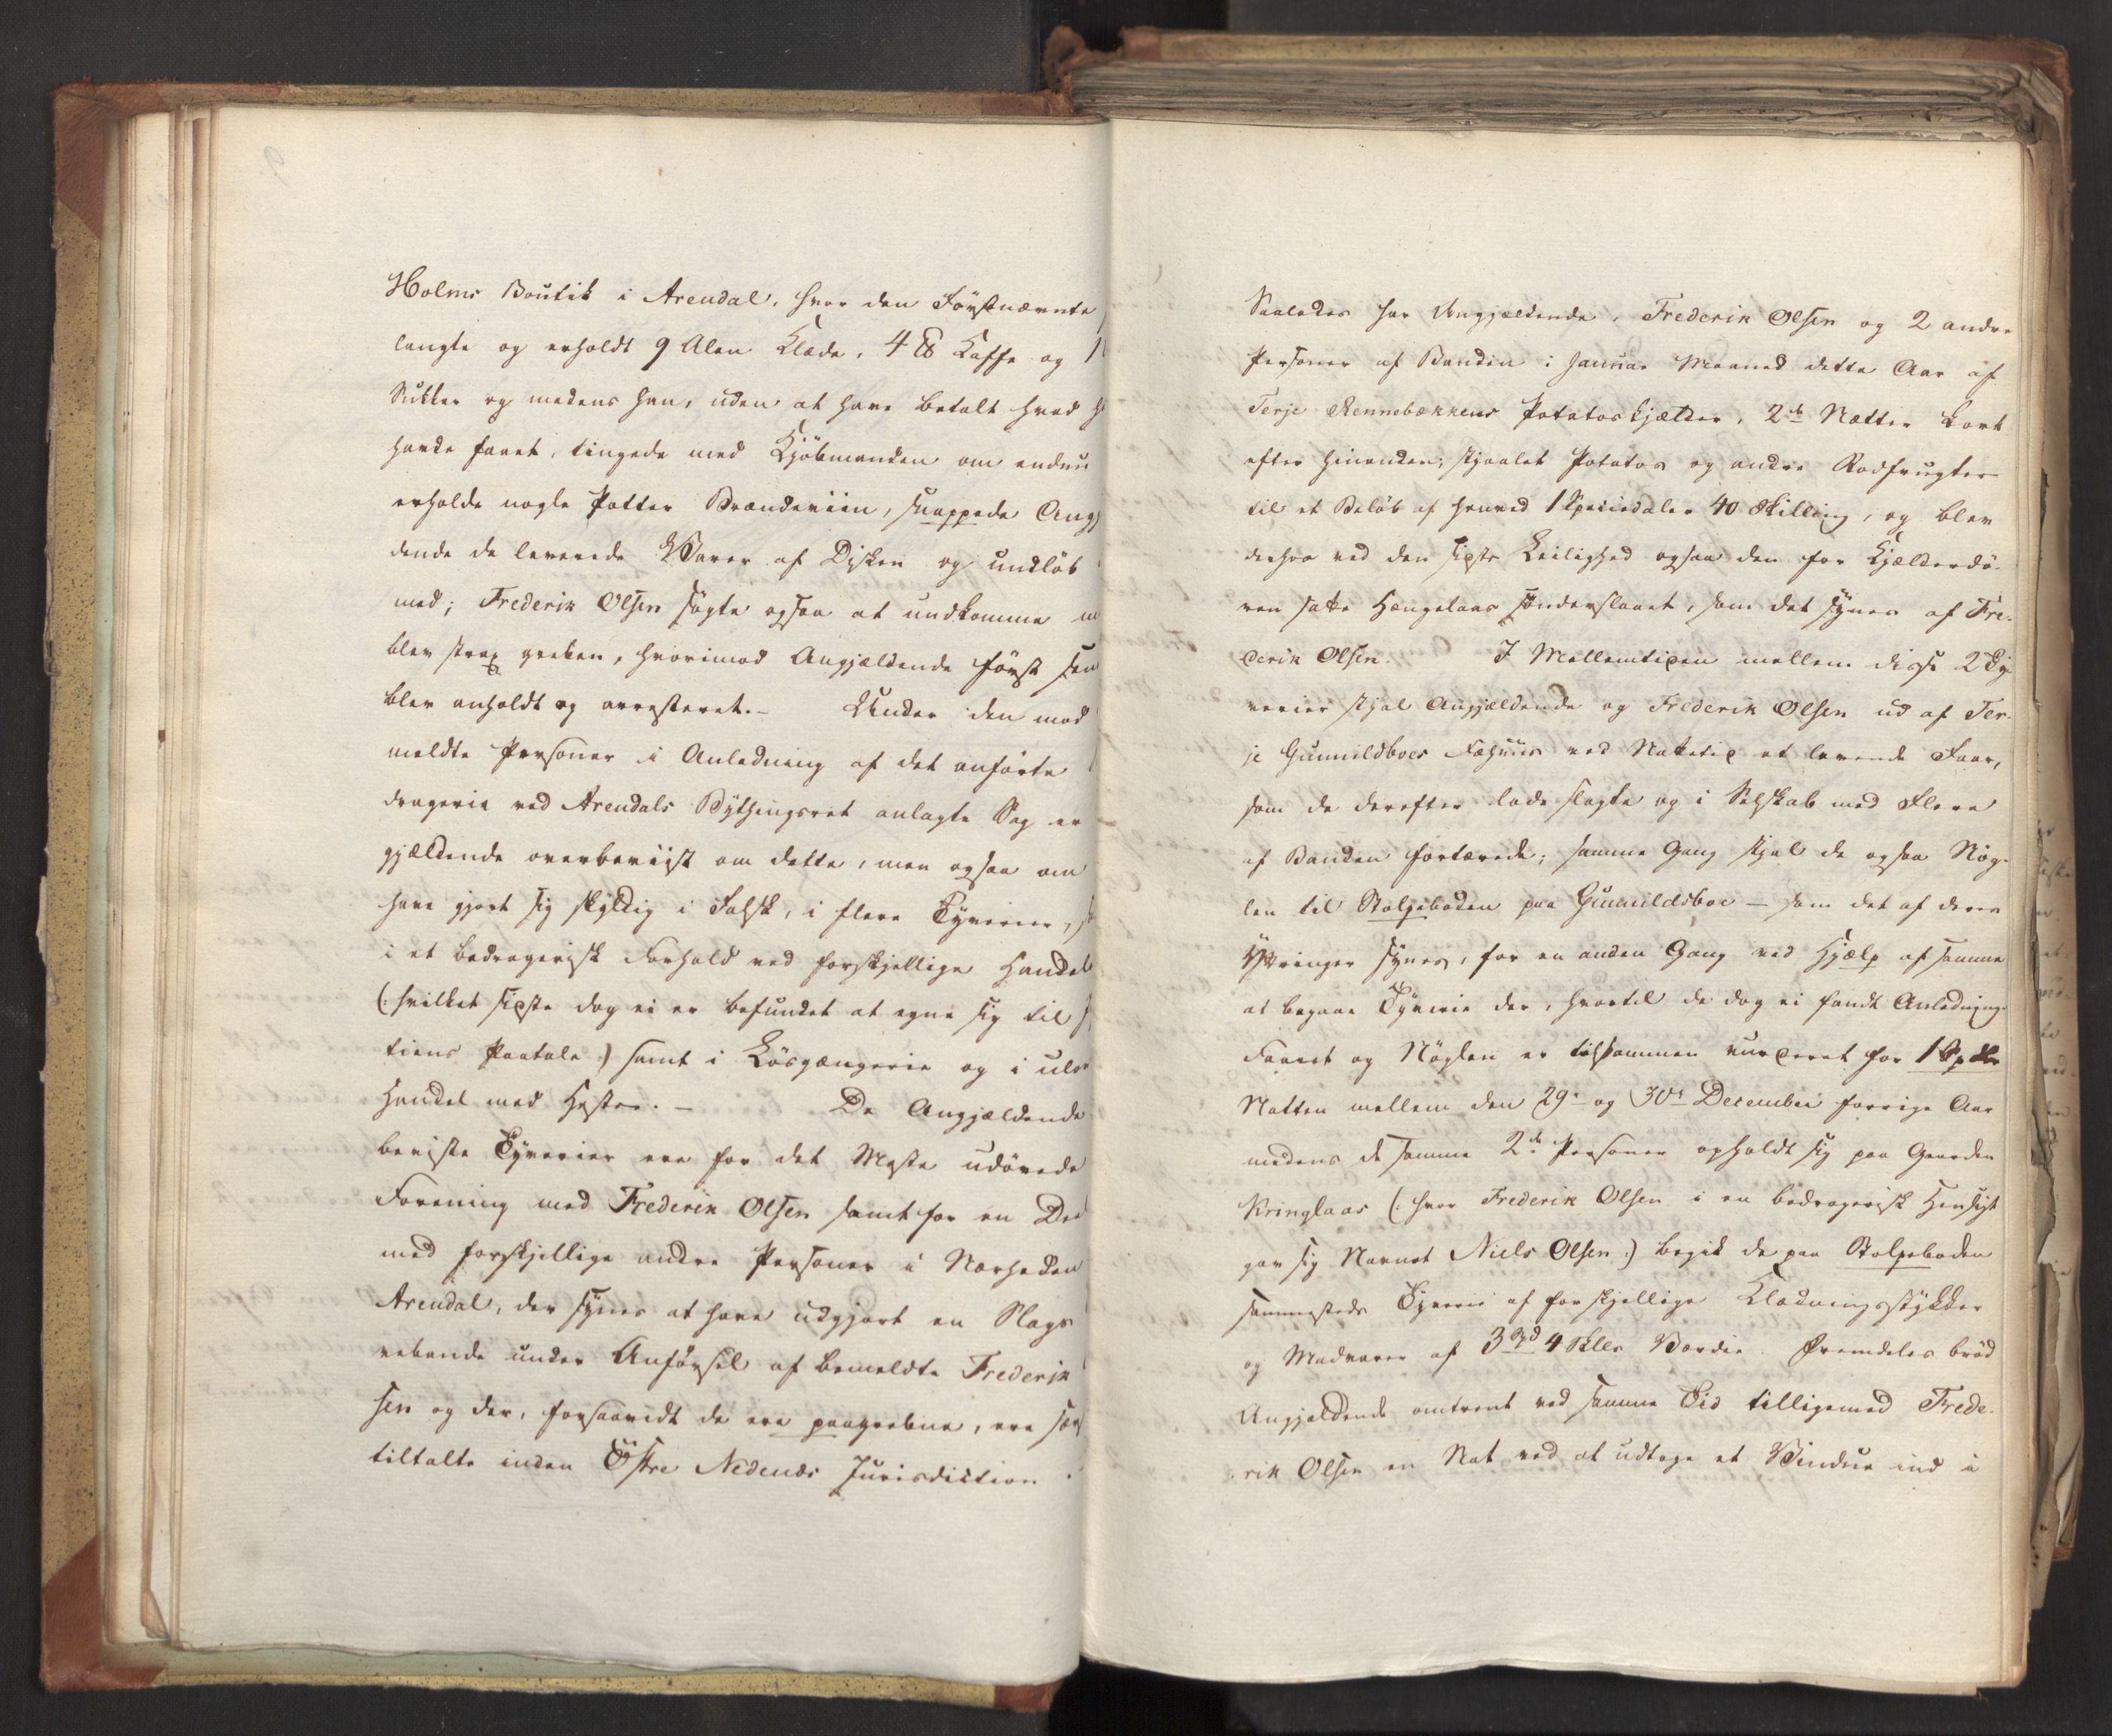 Holms Boutik i Arendal, hvor den Førstnævnte
langte og erholdt 9 Alen Klæde, 4 ℔ Kaffe og 1
Sukker og medens han, uden at have betalt hvad
havde faaet, tingede med Kjöbmanden om endnu
erholde nogle Potter Brændeviin, snappede Angj
dende de leverede Varer af Disken og undlöb
med; Frederik Olsen sögte ogsaa at undkomme
blev strax greben, hvorimod Angjældende först sen
blev anholdt og arresteret. – Under den mod
meldte Personer i Anledning af det anførte
dragerie ved Arendals Bythingsret anlagte Sag er
gjældende overbeviist om dette, men ogsaa om
have gjort sig skyldig i Falsk, i flere Tyverier,
i et bedragerisk Forhold ved forskjellige Handel
(: hvilket sidste dog ei er befundet at egne sig til
tiens Paatale :) samt i Lösgængerie og i ulov
Handel med Heste. – De Angjældende
beviste Tyverier ere for det Meste udövede
Forening med Frederik Olsen samt for en Deel
med forskjellige andre Personer i Nærheden
Arendal, der synes at have udgjort en Slags
vebande under Anförsel af bemeldte Frederik
sen og der, forsaavidt de ere paagrebne, ere sær
tiltalte inden Östre Nedenæs Jurisdiction.
Saaledes har Angjældende, Frederik Olsen og 2 andre
Personer af Banden i Januar Maaned dette Aar af
Terje Rennebækkens Potatoskjælder, 2de Nætter kort
efter hinanden, stjaalet Potatos og andre Rodfrugter
til et Belöb af henved 1 Speciedaler 40 Skilling, og blev
derhos ved den sidste Leilighed ogsaa den for Kjælderdö-
ren satte Hængelaas sönderslaaet, som det synes af Fre-
derik Olsen. I Mellemtiden mellem disse 2 Ty-
verier stjal Angjældende og Frederik Olsen ud af Ter-
je Gunnildboes Fæhuus ved Nattetid et levende Faar,
som de derefter lode slagte og i Selskab med Flere
af Banden fortærede; samme Gang stjal de ogsaa Nög-
len til Stolpeboden paa Gunnildsboe – som det af deres
Yttringer synes, for en anden Gang ved Hjælp af samme
at begaae Tyverie der, hvortil de dog ei fandt Anledning.
Faaret og Nöglen er tilsammen vurderet for 1 Spdlr
Natten mellem den 29de og 30te December forrige Aar
medens de samme 2de Personer opholdt sig paa Gaarden
Kringlaas (: hvor Frederik Olsen i en bedragerisk Hensigt
gav sig Navnet Niels Olsen :) begik de paa Stolpeboden
sammesteds Tyverie af forskjellige Klædningsstykker
og Madvarer af 3 Spd 4 Skllrs Værdie. Fremdeles bröd
Angjældende omtrent ved samme Tid tilligemed Frede-
rik Olsen en Nat ved at udtage et Vindue ind i